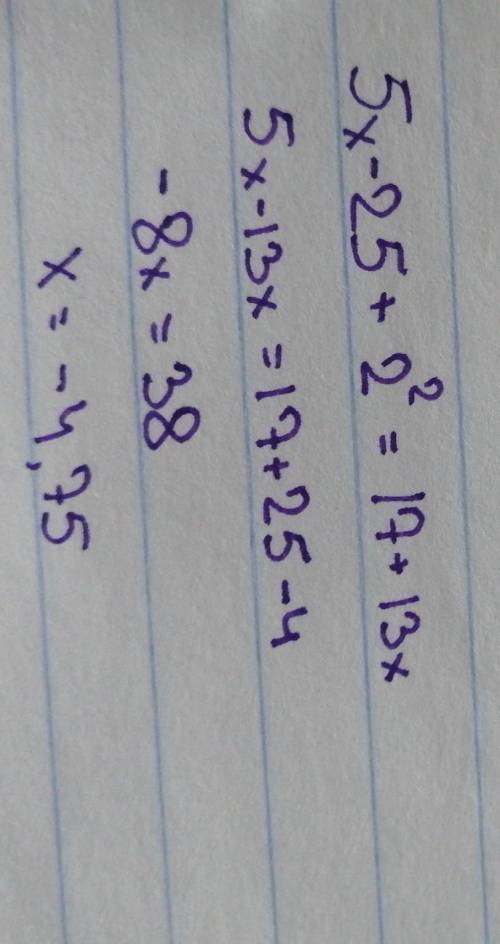 5x-25+2² = 17+13x
5x-13x = 17+25-4
-8x = 38
x = -4,75